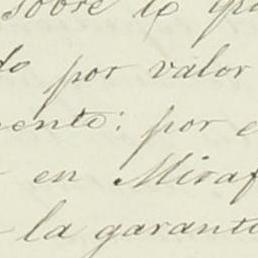 sobre lo
do por valor
mente: por e
en Miraf
la garant